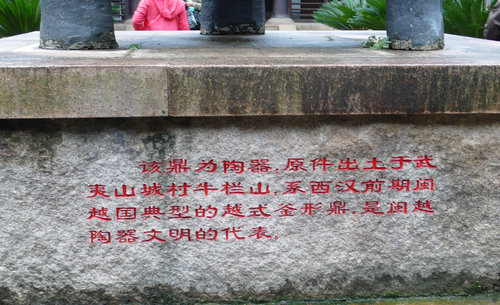 该鼎为陶器,原件出土于武
夷山城村牛栏山,系西汉前期闽
越国典型的越式釜形鼎,是闽越
陶器文明的代表。